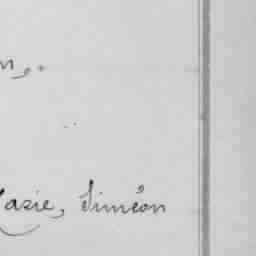 Marie, Siméon